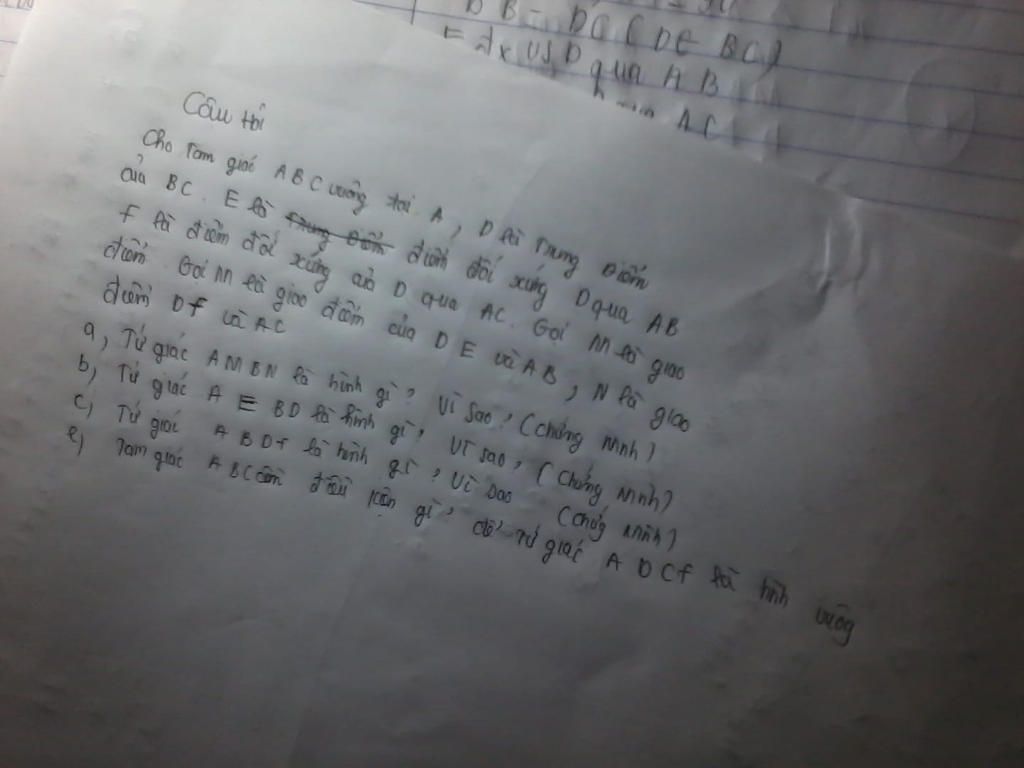 D B = D C ( D ∈ B C )
E đx vs D qua A B
qua A C
Câu Hỏi
Cho Tam giác A B C vuông tại A , D là Trung Điểm
của B C . E là Trung Điểm điểm đối xứng D qua A B
F là điểm đối xứng của D qua A C . Gọi M là giao
điểm . Gọi M là giao điểm của D E và A B , N là giao
điểm D F và A C
a, Tứ giác A M B N là hình gì ? Vì sao , ( Chứng Minh )
b, Tứ giác A E B D là hình gì , Vì sao , ( Chứng Minh )
c, Tứ giác A B D F là hình gì , Vì sao ( Chứng Minh )
e, Tam giác A B C cần điều kiện gì , để Tứ giác A D C F là hình vuông